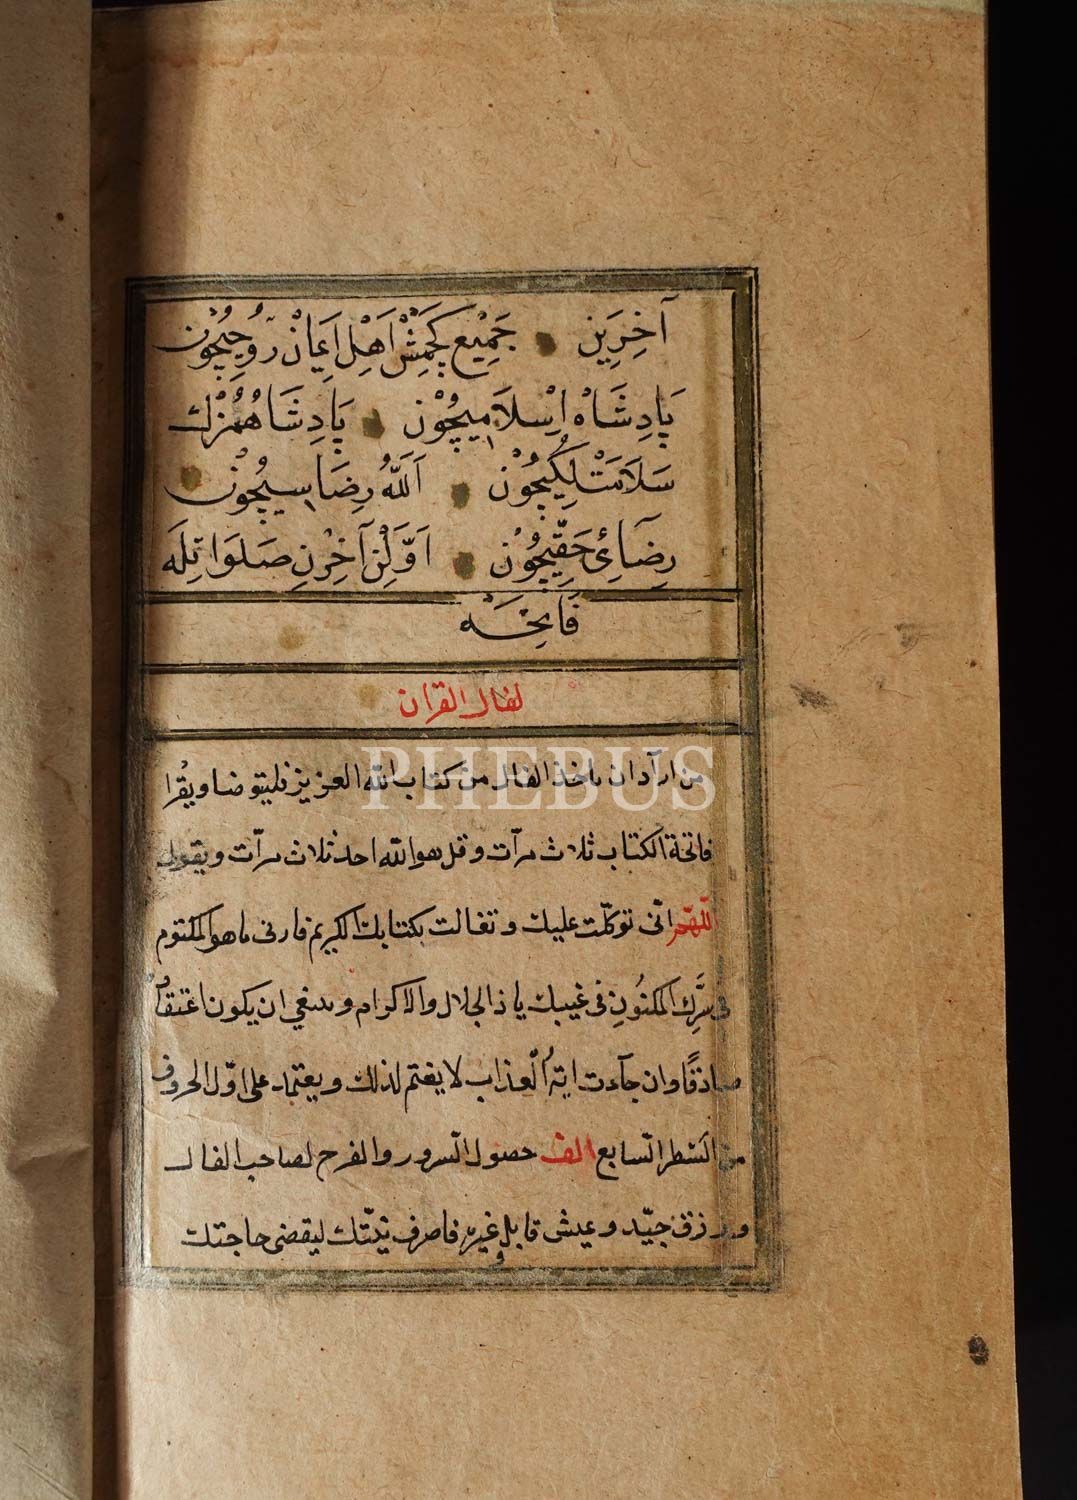 آخِرِينْ جَمِيعِ كَچْمِشْ اَهْلِ اِيمَانْ رُوحِيچُونْ
پَادِشَاهْ اِسْلَامِيچُونْ پَادِشَاهُمُزْكْ
سَلَامَتْلِكِيچُونْ اَللّٰهُ رِضَاسِيچُونْ
رِضَائِ حَقِّيچُونْ اَوَّلِنْ آخِرِنْ صَلَوَاتِلَه
فَاتِحَه
لفال القران
من ارآد ان ياخذ الفال من كتاب الله العزيز فليتوضا ويقرا
فاتحة الكتاب ثلاث مرآت وقل هو الله احد ثلاث مرآت ويقول
اللّهمّ انّى توكلّت عليك وتفالت بكتابك الكريم فارنى ما هو المكتوم
فى سِرِّك المكنُونِ فى غيبك يا ذالجلال والاكرام وينبغي ان يكون اعتقادُ
صادقًا وان جآءت ايةُ العذاب لا يغتم لذلك ويعتمد على اوّل الحروف
من السّطر السّابع الف حصول السّرور والفرح لصاحب الفال
ورزق جيّد وعيش قابل وغيره فاصرف نيّتك ليقضى حاجتك
PHEBUS